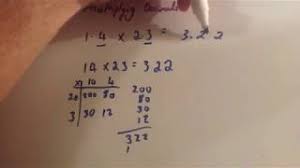 Multiplying Decimals
1.4 x 2.3 = 3.2 2
14 x 23 = 322
x 10 4
20 200 80
3 30 12
200
80
30
12
322
1